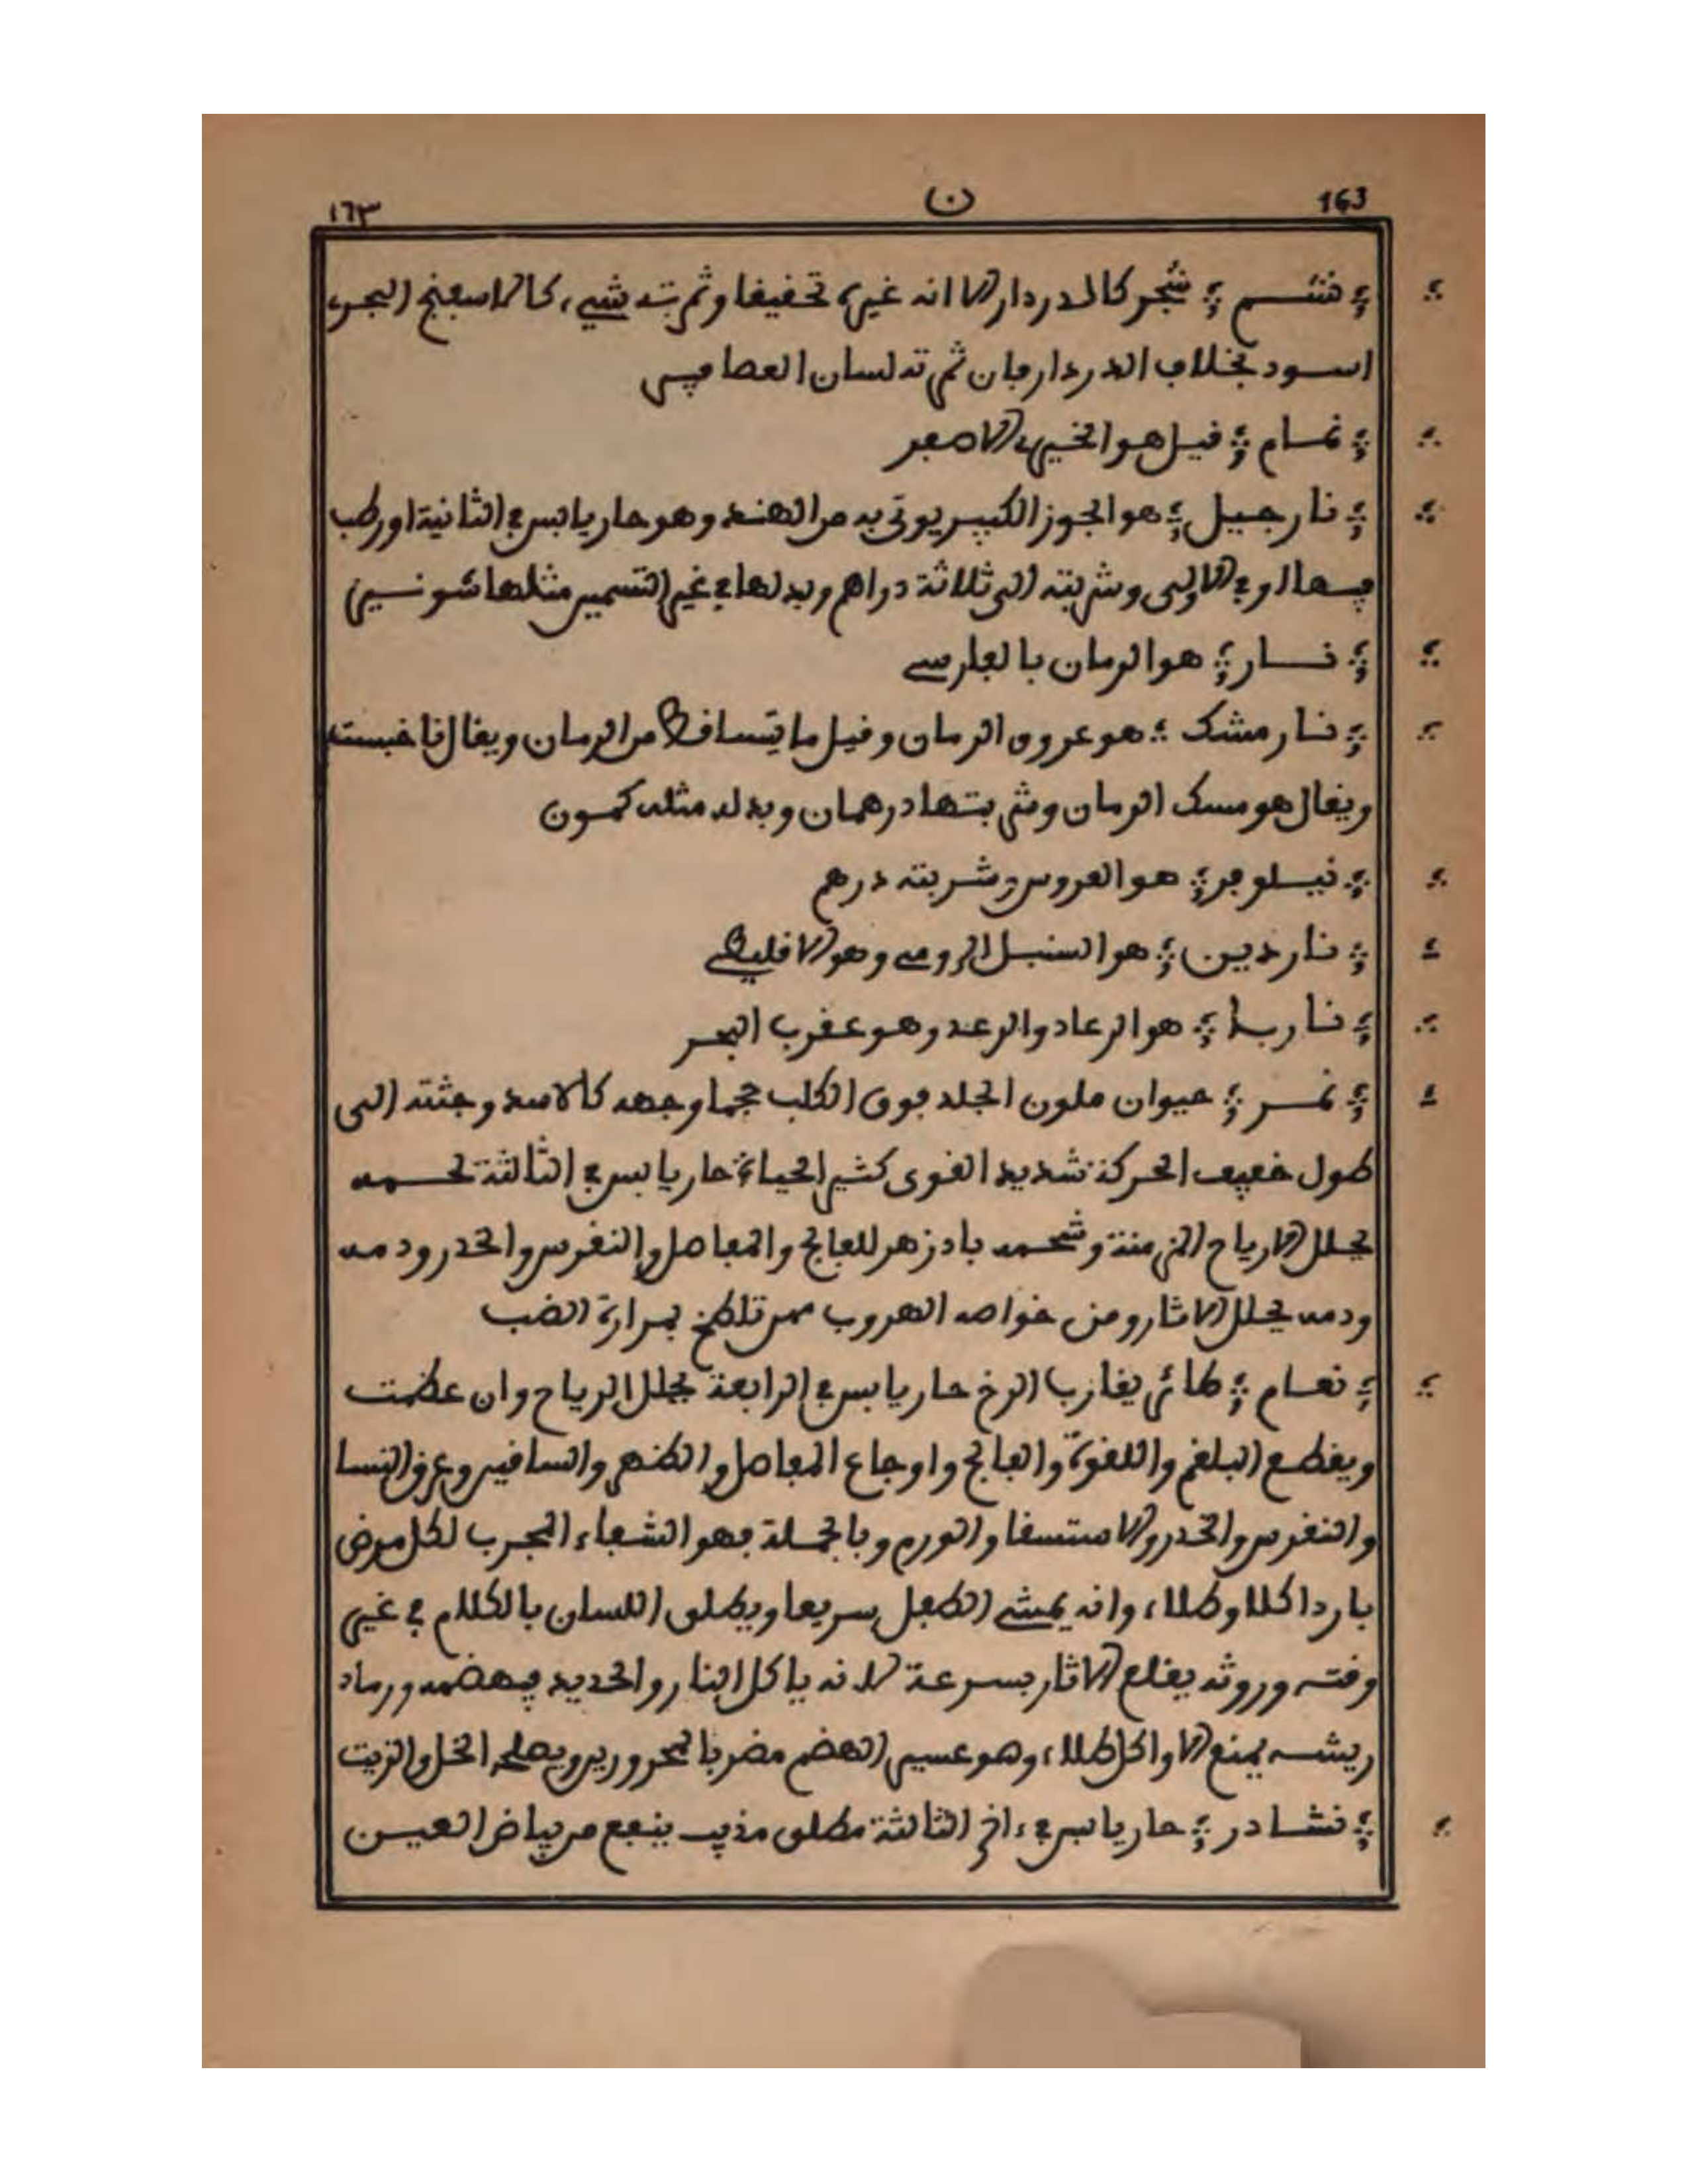 163 ن ١٦٣
نشم شجر كالدردار الا انه غيره تحقيقا وثمرته شيء كالاسفنج البحري
اسود بخلاف الدردار فان ثمرته لسان العصافير
نمام قيل هو الخيري الاصفر
نارجيل هو الجوز الكبير يوتى به من الهند وهو حار يابس في الثانية او رطب
فيها او في الاولى وشربته الى ثلاثة دراهم وبدلها في غير التسمين مثلها شونيز
نار هو الرمان بالفارسي
نار مشك هو عروق الرمان وقيل ما يتساقط من الرمان ويقال ناغبست
ويقال هو مسك الرمان وشربتها درهمان وبدله مثله كمون
نيلوفر هو العروس وشربته درهم
ناردين هو السنبل الرومي وهو الاقليطي
ناربا هو الرعاد والرعد وهو عقرب البحر
نمر حيوان ملون الجلد فوق الكلب حجما وجهه كالاسد وجثته الى
طول خفيف الحركة شديد القوى كثير الحياء حار يابس في الثالثة لحمه
يحلل الارياح المزمنة وشحمه بادزهر للفالج والمفاصل والنقرس والخدر ودمه
ودمه يحلل الاثار ومن خواصه الهروب ممن تلطخ بمرارة الضب
نعام طائر يقارب الرخ حار يابس في الرابعة يحلل الرياح وان عظمت
ويقطع البلغم واللقوة والفالج واوجاع المفاصل والظهر والساقين وعرق النسا
والنقرس والخدر والاستسقا والورم وبالجملة فهو الشفاء المجرب لكل مرض
باردا كلا وطلاء وانه يمشي الطفل سريعا ويطلق اللسان بالكلام في غير
وقته وروثه يقلع الاثار بسرعة لانه ياكل النار والحديد فيهضمه ورماد
ريشه يمنع الاواكل طلاء وهو عسير الهضم مضر بالمحرورين ويصلحه الخل والزيت
نشادر حار يابس في ءاخر الثالثة مطلق مذيب ينفع من بياض العين